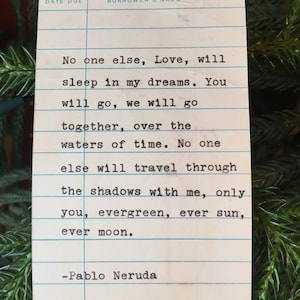 DATE DUE BORROWER'S NAME
No one else, Love, will
sleep in my dreams. You
will go, we will go
together, over the
waters of time. No one
else will travel through
the shadows with me, only
you, evergreen, ever sun,
ever moon.
-Pablo Neruda